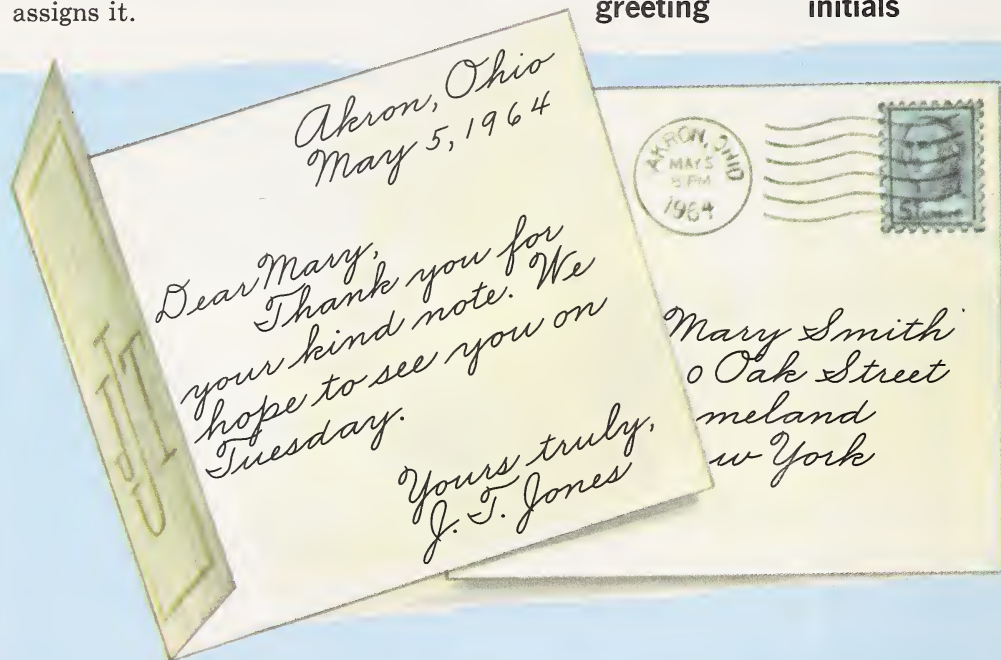 assigns it.
greeting initials
Akron, Ohio
May 5, 1964
Dear Mary,
Thank you for
your kind note. We
hope to see you on
Tuesday.
Yours truly,
J. T. Jones
JTJ
AKRON, OHIO
MAY 5
PM
1964
5¢
Mary Smith
o Oak Street
meland
w York